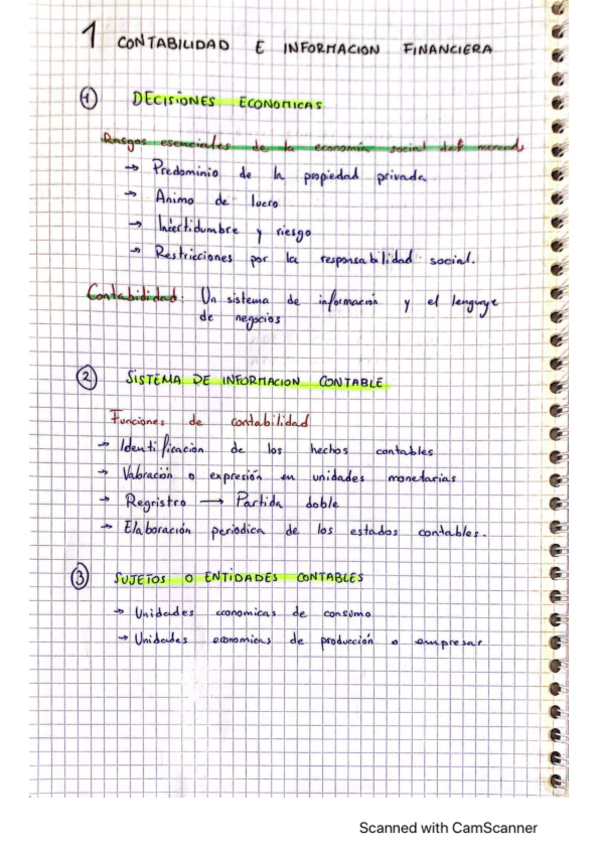 1 CONTABILIDAD E INFORMACION FINANCIERA
1 DECISIONES ECONOMICAS
Rasgos esenciales de la economía social del mercado
→ Predominio de la propiedad privada
→ Animo de lucro
→ Incertidumbre y riesgo
→ Restricciones por la responsabilidad social.
Contabilidad: Un sistema de información y el lenguaje
de negocios
2 SISTEMA DE INFORMACION CONTABLE
Funciones de contabilidad
→ Identificación de los hechos contables
→ Valoración o expresión en unidades monetarias
→ Registro → Partida doble
→ Elaboración periodica de los estados contables.
3 SUJETOS O ENTIDADES CONTABLES
→ Unidades economicas de consumo
→ Unidades economicas de producción o empresas
Scanned with CamScanner